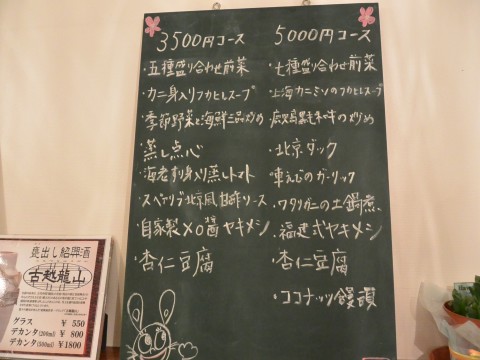 3500円コース
・五種盛り合わせ前菜
・カニ身入りフカヒレスープ
・季節野菜と海鮮三品炒め
・蒸し点心
・海老すり身入り蒸しトマト
・スペアリブ北京風甘酢ソース
・自家製XO醤ヤキメシ
・杏仁豆腐
5000円コース
・七種盛り合わせ前菜
・上海カニミソのフカヒレスープ
の炒め
・北京ダック
・車えびのガーリック
・ワタリガニの土鍋煮
・福建式ヤキメシ
・杏仁豆腐
・ココナッツ饅頭
甕出し紹興酒
古越龍山
グラス ¥ 550
デカンタ(200ml) ¥ 800
デカンタ(500ml) ¥1800